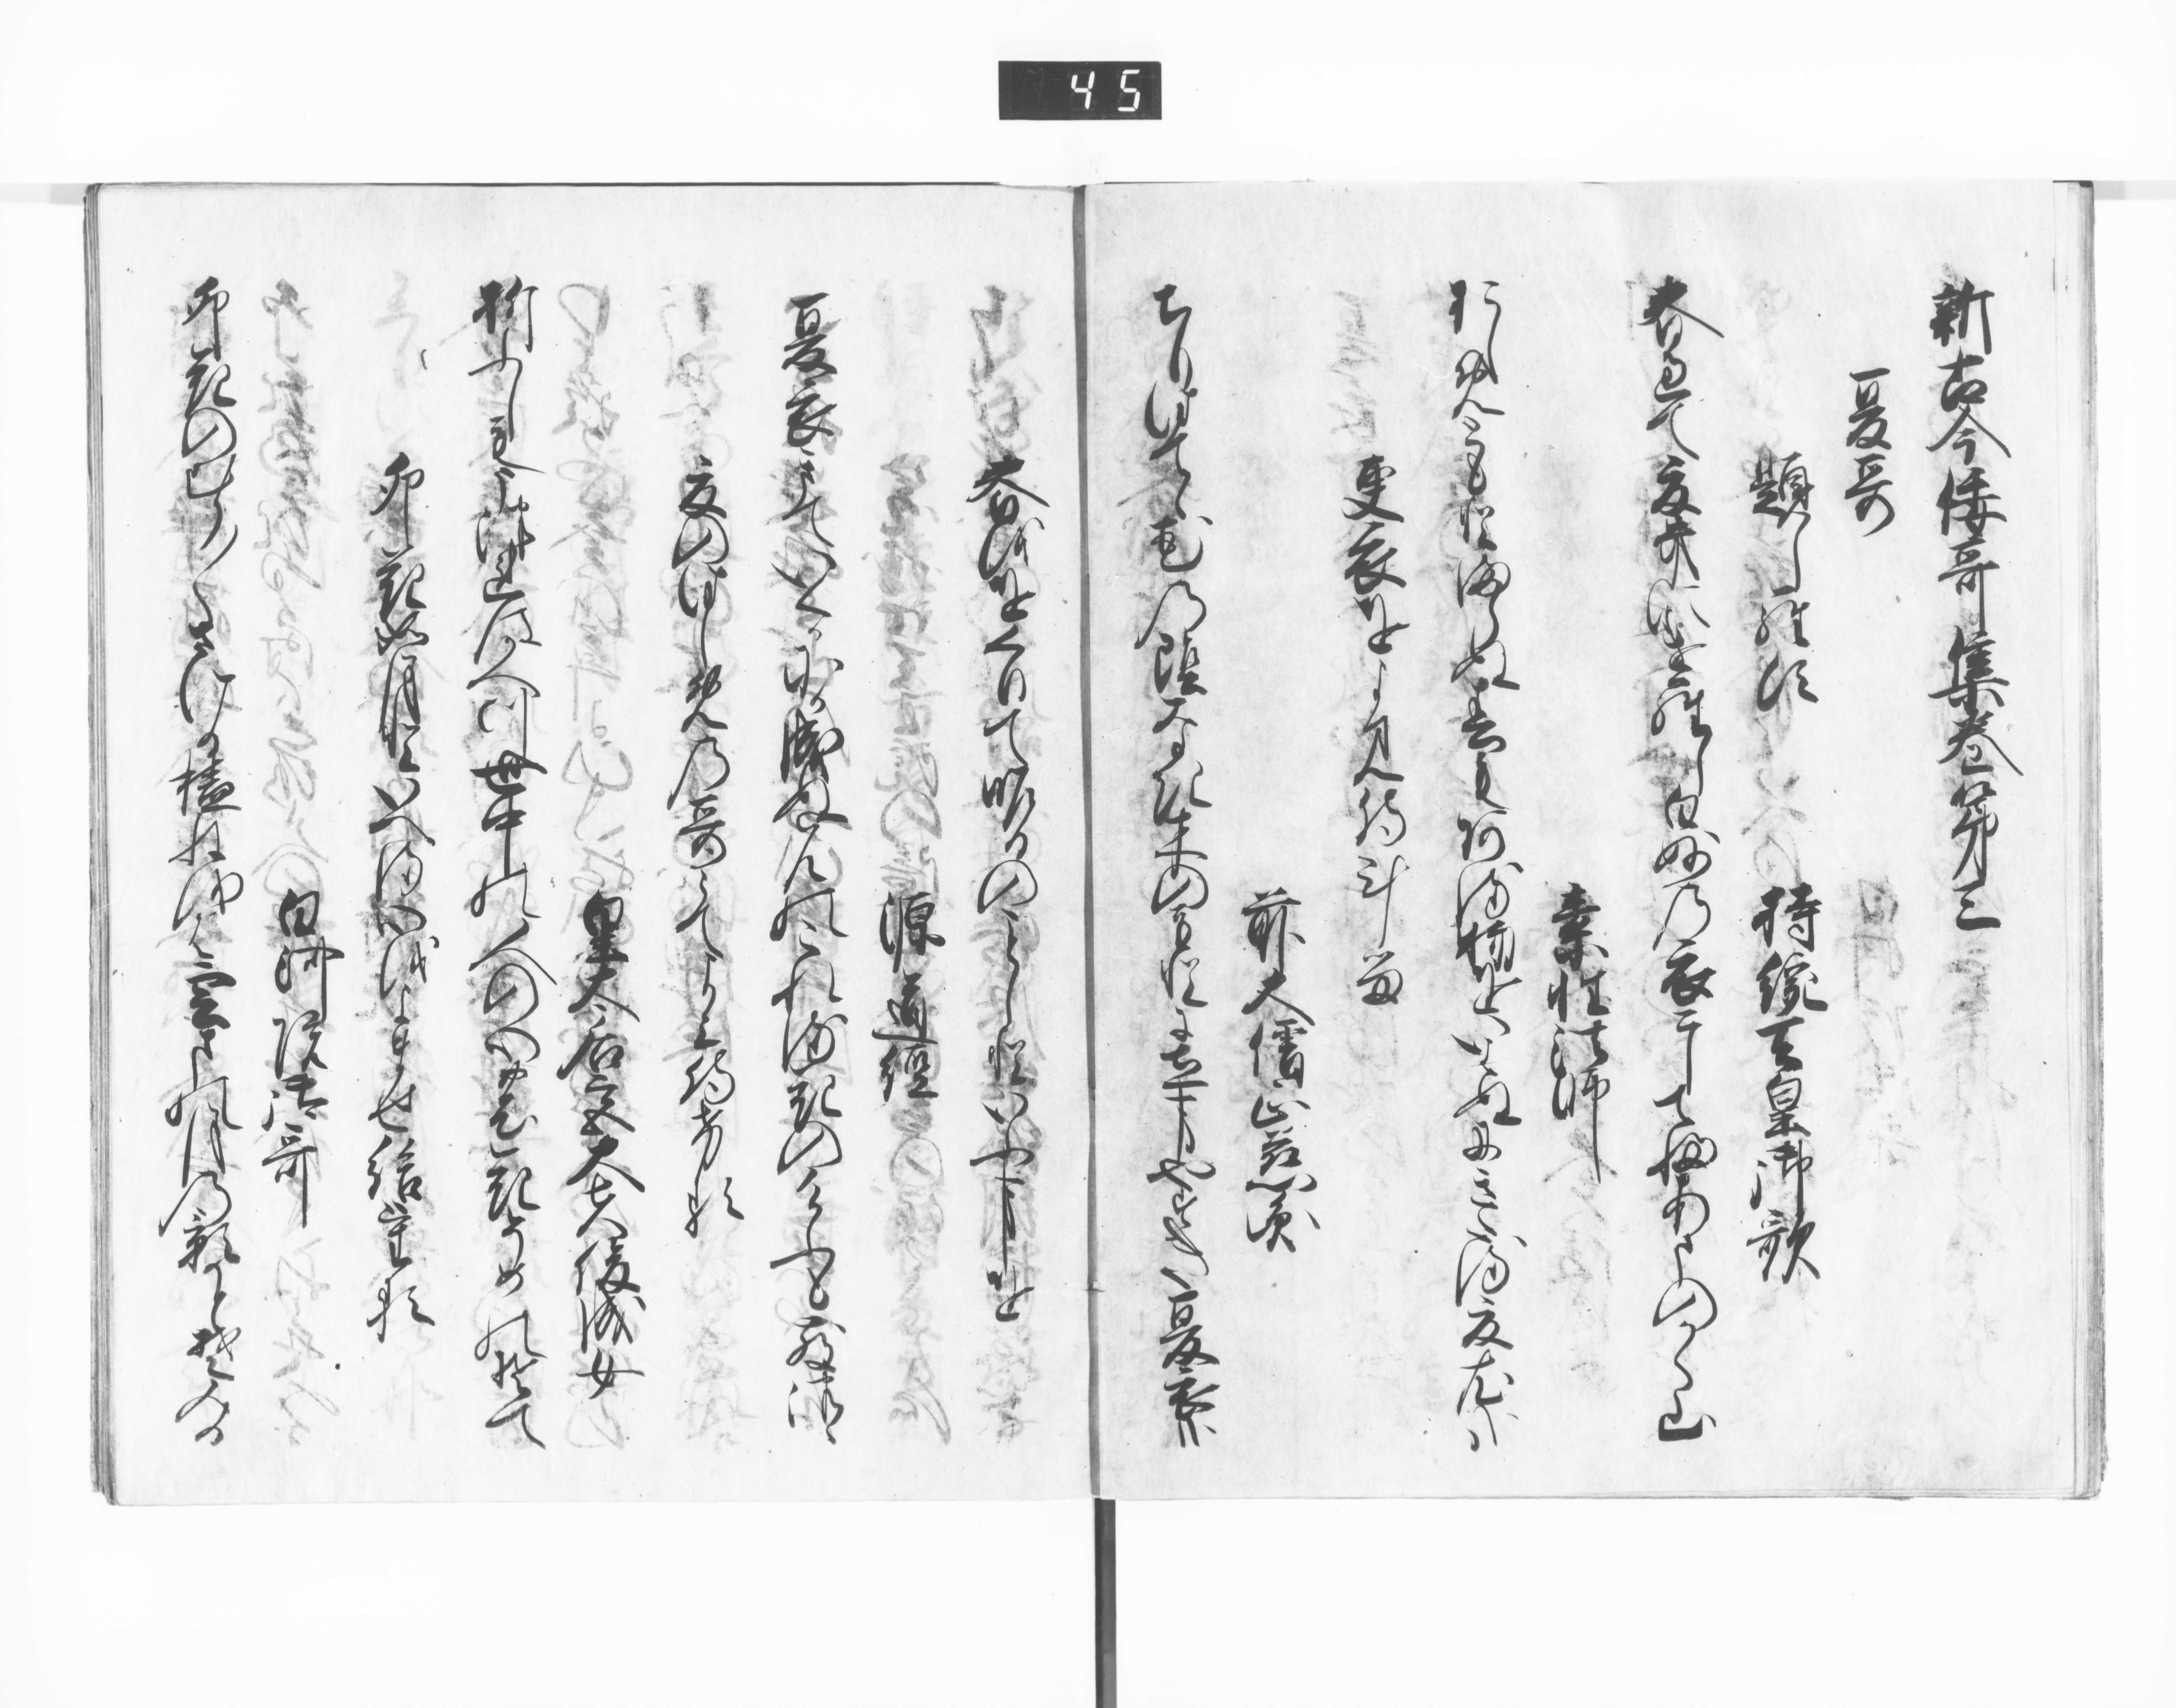 45
新古今倭哥集巻第三
夏哥
題しらす
持統天皇御歌
春過て夏来にけらし白妙の衣干てふあまのかく山
素性法師
おしめともとまらぬ春もある物をいはぬにきたる夏衣かな
更衣をよみ侍ける
前大僧正慈円
ちりはてゝ花の陰なき木の本にたつことやすき夏衣かな
春をゝくりて昨日のことしといふことを
源道経
夏衣きていくかにか成ぬらんのこれる花のけふもちりつゝ
夏のはしめの哥とてよみ侍ける
皇太后宮大夫俊成女
折ふしもうつれはかへつ世中の人の心の花そめの袖
卯花如月といへる心をよませ給ける
白河院御哥
卯花のむら／＼さける垣ねをは雲まの月の影かとそみる